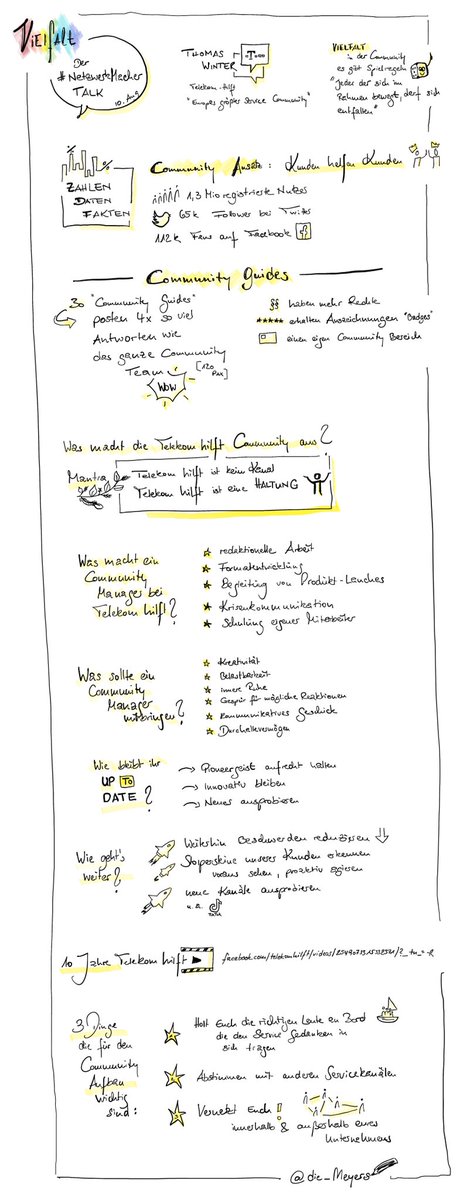 Vielfalt
Der
#NetzwerkMacher
TALK
10. Aug
THOMAS
WINTER
·T···
Telekom-hilft
"Europas größter Service Community"
VIELFALT
in der Community
es gibt Spielregeln
"Jeder der sich im
Rahmen bewegt, darf sich
entfalten"
ZAHLEN
DATEN
FAKTEN
%
Community Ansatz: Kunden helfen Kunden
1,3 Mio registrierte Nutzer
65k Follower bei Twitter
112k Fans auf Facebook
Community Guides
30 "Community Guides"
posten 4x so viel
Antworten wie
das ganze Community
Team
[120 Pax]
WOW
§§ haben mehr Rechte
***** erhalten Auszeichnungen "Badges"
einen eigen Community Bereich
Was macht die Telekom hilft Community aus?
Mantra
Telekom hilft ist kein Kanal
Telekom hilft ist eine HALTUNG
Was macht ein
Community
Manager bei
Telekom hilft?
redaktionelle Arbeit
Formatentwicklung
Begleitung von Produkt-Launches
Krisenkommunikation
Schulung eigener Mitarbeiter
Was sollte ein
Community
Manager
mitbringen?
Kreativität
Belastbarkeit
innere Ruhe
Gespür für mögliche Reaktionen
Kommunikatives Geschick
Durchhaltevermögen
Wie bleibt ihr
UP TO
DATE?
→ Pioneergeist aufrecht halten
→ Innovativ bleiben
→ Neues ausprobieren
Wie geht's
weiter?
Weiterhin Beschwerden reduzieren
Stolpersteine unserer Kunden erkennen
voraus sehen, proaktiv agieren
neue Kanäle ausprobieren
u.a.
10 Jahre Telekom hilft
3 Dinge
die für den
Community
Aufbau
wichtig
sind:
1 Holt Euch die richtigen Leute an Bord
die den Service Gedanken in
sich tragen
2 Abstimmen mit anderen Servicekanälen
3 Vernetzt Euch!
innerhalb & außerhalb eures
Unternehmens
@die_Meyers